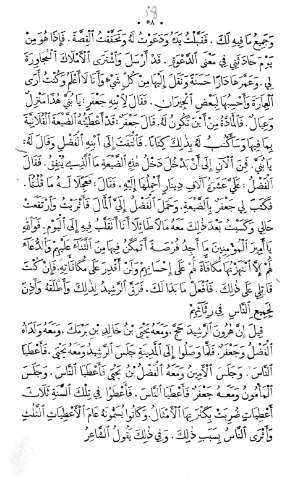 ٥٨
وَجَمِيعَ مَا فِيهِ لَكَ . فَقَبَّلْتُ يَدَهُ وَدَعَوْتُ لَهُ وَتَحَقَّقْتُ الْقِصَّةَ . فَإِذَا هُوَ مِنْ
يَوْمِ حَادَثَنِي فِي مَعْنَى الدَّعْوَةِ . قَدْ أَرْسَلَ وَاشْتَرَى الْأَمْلَاكَ الْمُجَاوِرَةَ
لِي . وَعَمَّرَهَا دَارًا حَسَنَةً وَنَقَلَ إِلَيْهَا مِنْ كُلِّ شَيْءٍ وَأَنَا لَا أَعْلَمُ وَكُنْتُ أَرَى
الْعِمَارَةَ وَأَحْسِبُهَا لِبَعْضِ الْجِيرَانِ . فَقَالَ لِابْنِهِ جَعْفَرٍ: يَا بُنَيَّ هٰذَا مَنْزِلٌ
وَعِيَالٌ . فَالْمَادَّةُ مِنْ أَيْنَ تَكُونُ لَهُ . قَالَ جَعْفَرٌ: قَدْ أَعْطَيْتُهُ الضَّيْعَةَ الْفُلَانِيَّةَ
بِمَا فِيهَا وَسَأَكْتُبُ لَهُ بِذٰلِكَ كِتَابًا . فَالْتَفَتَ إِلَى ابْنِهِ الْفَضْلِ وَقَالَ لَهُ:
يَا بُنَيَّ . فَمِنَ الْآنَ إِلَى أَنْ يَدْخُلَ دَخْلُ هٰذِهِ الضَّيْعَةِ مَا الَّذِي يُنْفِقُ . فَقَالَ
الْفَضْلُ: عَلَيَّ عَشَرَةُ آلَافِ دِينَارٍ أَحْمِلُهَا إِلَيْهِ . فَقَالَ: فَعَجِّلَا لَهُ مَا قُلْتُمَا .
فَكَتَبَ لِي جَعْفَرٌ بِالضَّيْعَةِ . وَحَمَلَ الْفَضْلُ إِلَيَّ الْمَالَ فَأَثْرَيْتُ وَارْتَفَعَتْ
حَالِي وَكَسَبْتُ بَعْدَ ذٰلِكَ مَعَهُ مَالًا طَائِلًا أَنَا أَتَقَلَّبُ فِيهِ إِلَى الْيَوْمِ . فَوَاللّٰهِ
يَا أَمِيرَ الْمُؤْمِنِينَ مَا أَجِدُ فُرْصَةً أَتَمَكَّنُ فِيهَا مِنَ الثَّنَاءِ عَلَيْهِمْ وَالدُّعَاءِ
لَهُمْ إِلَّا انْتَهَزْتُهَا مُكَافَاةً لَهُمْ عَلَى إِحْسَانِهِمْ وَلَنْ أَقْدِرَ عَلَى مُكَافَاتِهِ . فَإِنْ كُنْتَ
قَاتِلِي عَلَى ذٰلِكَ . فَافْعَلْ مَا بَدَا لَكَ . فَرَقَّ الرَّشِيدُ لِذٰلِكَ وَأَطْلَقَهُ وَأَذِنَ
لِجَمِيعِ النَّاسِ فِي رِثَائِهِمْ
قِيلَ إِنَّ هَارُونَ الرَّشِيدَ حَجَّ . وَمَعَهُ يَحْيَى بْنُ خَالِدِ بْنِ بَرْمَكَ . وَمَعَهُ وَلَدَاهُ
الْفَضْلُ وَجَعْفَرٌ . فَلَمَّا وَصَلُوا إِلَى الْمَدِينَةِ جَلَسَ الرَّشِيدُ وَمَعَهُ يَحْيَى . فَأَعْطَيَا
النَّاسَ . وَجَلَسَ الْأَمِينُ وَمَعَهُ الْفَضْلُ بْنُ يَحْيَى فَأَعْطَيَا النَّاسَ . وَجَلَسَ
الْمَأْمُونُ وَمَعَهُ جَعْفَرٌ فَأَعْطَيَا النَّاسَ . فَأَعْطَوْا فِي تِلْكَ السَّنَةِ ثَلَاثَ
أَعْطِيَاتٍ ضُرِبَتْ بِكَثْرَتِهَا الْأَمْثَالُ . وَكَانُوا يُسَمُّونَهُ عَامَ الْأَعْطِيَاتِ الثَّلَاثِ
وَأَثْرَى النَّاسُ بِسَبَبِ ذٰلِكَ . وَفِي ذٰلِكَ يَقُولُ الشَّاعِرُ